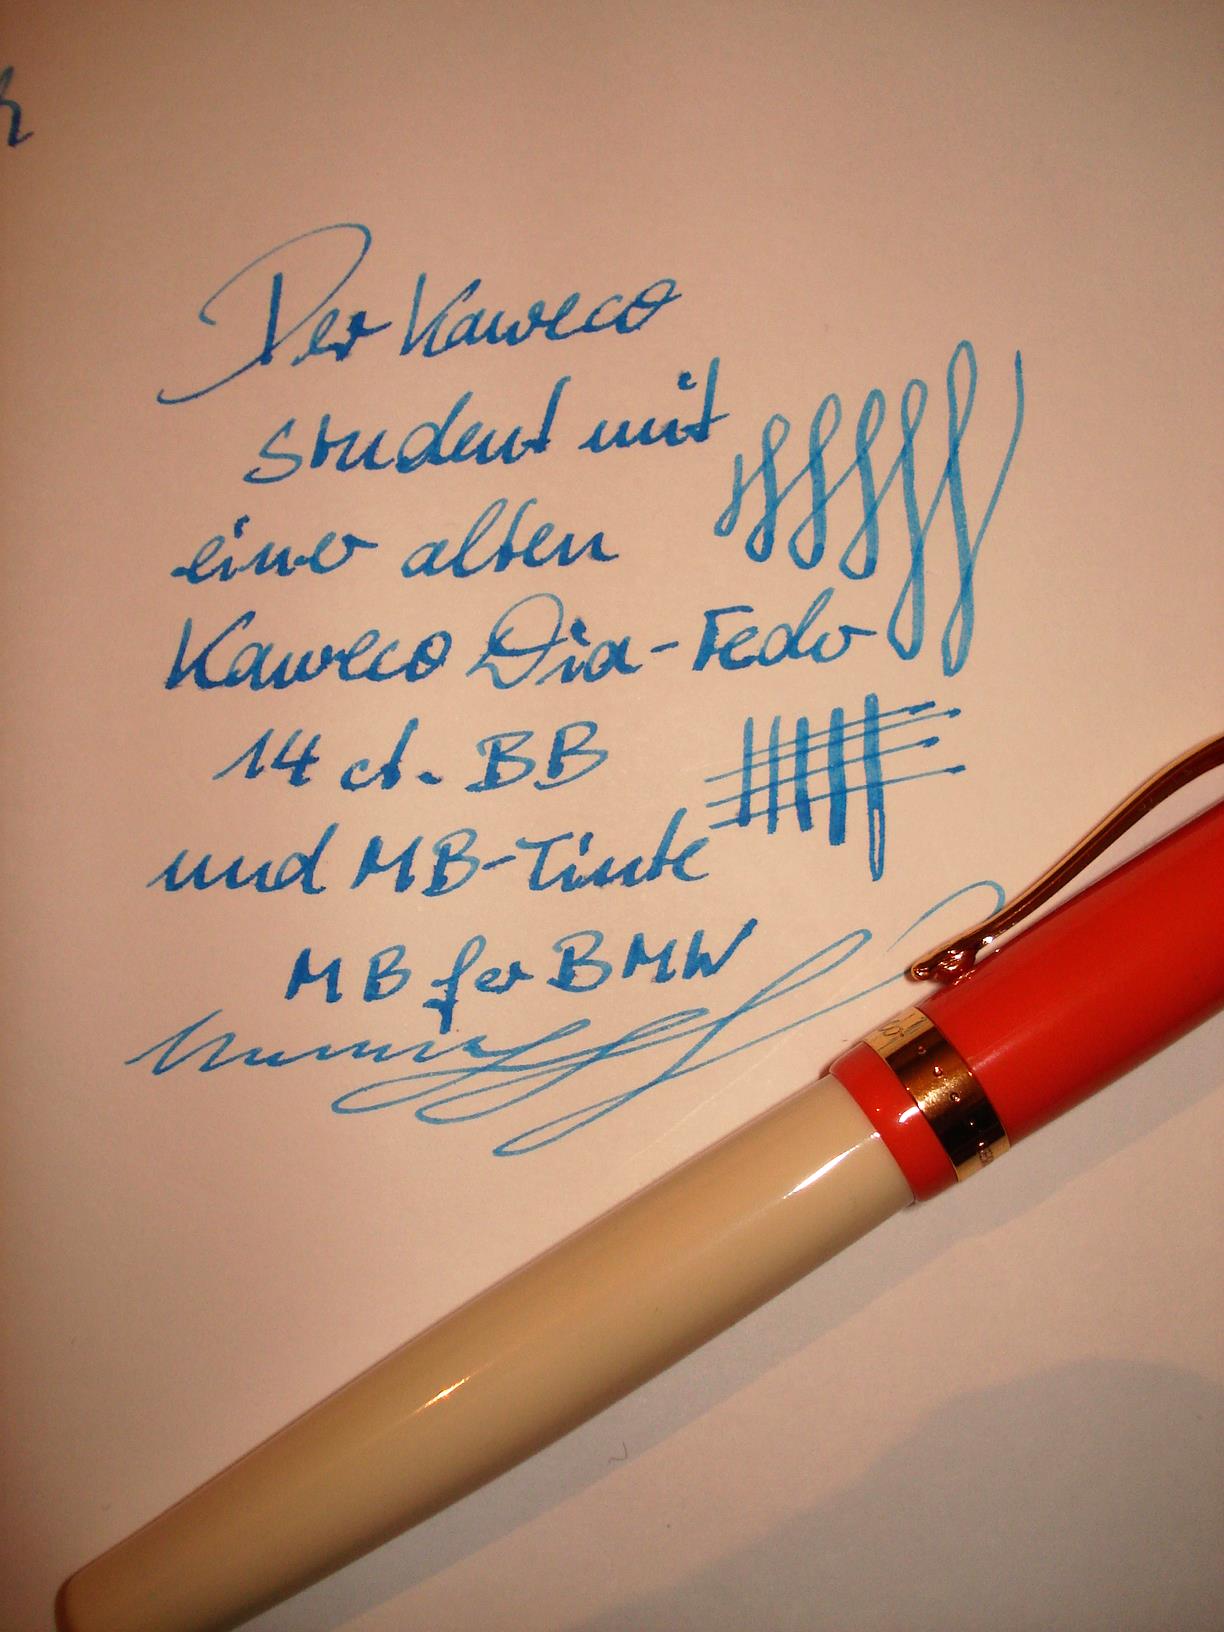 Der Kaweco
Student mit
einer alten
Kaweco Dia-Feder
14 ct. BB
und MB-Tinte
MB for BMW